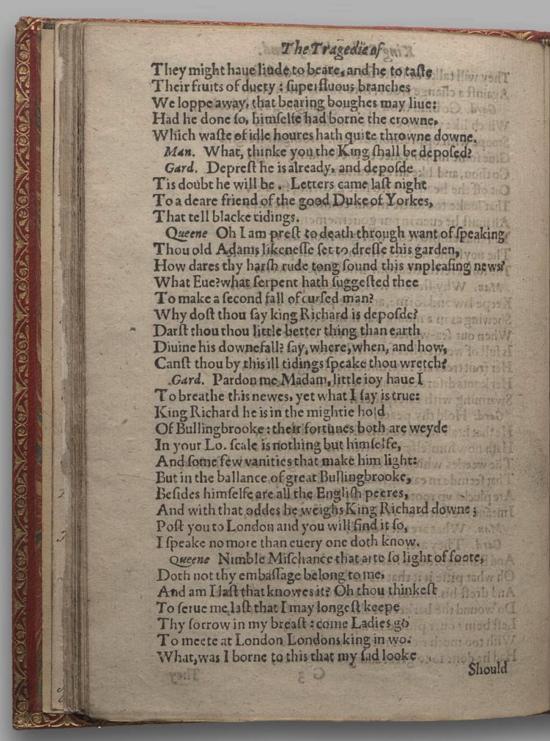 The Tragedie of
They might haue liude to beare, and he to taste
Their fruits of duety: superfluous branches
We loppe away, that bearing boughes may liue:
Had he done so, himselfe had borne the crowne,
Which waste of idle houres hath quite throwne downe.
Man. What, thinke you the King shall be deposed?
Gard. Deprest he is already, and deposde
Tis doubt he will be. Letters came last night
To a deare friend of the good Duke of Yorkes,
That tell blacke tidings.
Queene Oh I am prest to death through want of speaking
Thou old Adams likenesse set to dresse this garden,
How dares thy harsh rude tong sound this vnpleasing news?
What Eue? what serpent hath suggested thee
To make a second fall of cursed man?
Why dost thou say king Richard is deposde?
Darst thou thou little better thing than earth
Diuine his downefall? say, where, when, and how,
Canst thou by this ill tidings speake thou wretch?
Gard. Pardon me Madam, little ioy haue I
To breathe this newes, yet what I say is true:
King Richard he is in the mightie hold
Of Bullingbrooke: their fortunes both are weyde
In your Lo. scale is nothing but himselfe,
And some few vanities that make him light:
But in the ballance of great Bullingbrooke,
Besides himselfe are all the English peeres,
And with that oddes he weighs King Richard downe;
Post you to London and you will find it so,
I speake no more than euery one doth know.
Queene Nimble Mischance that arte so light of foote,
Doth not thy embassage belong to me,
And am I last that knowes it? Oh thou thinkest
To serue me last that I may longest keepe
Thy sorrow in my breast: come Ladies go
To meete at London Londons king in wo.
What, was I borne to this that my sad looke
Should